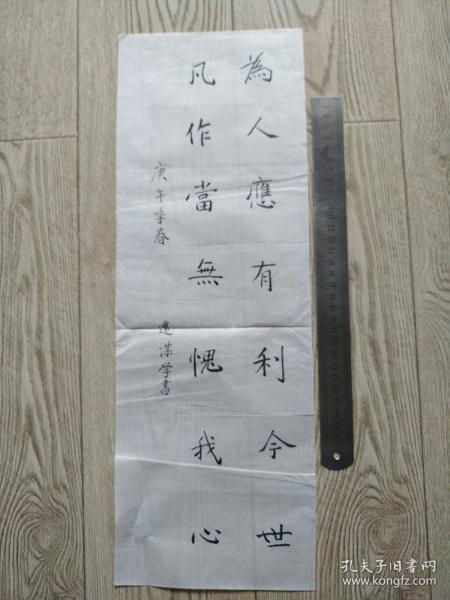 為人應有利今世
凡作當無愧我心
庚午季春
逸謀学書
孔夫子旧书网
www.kongfz.com